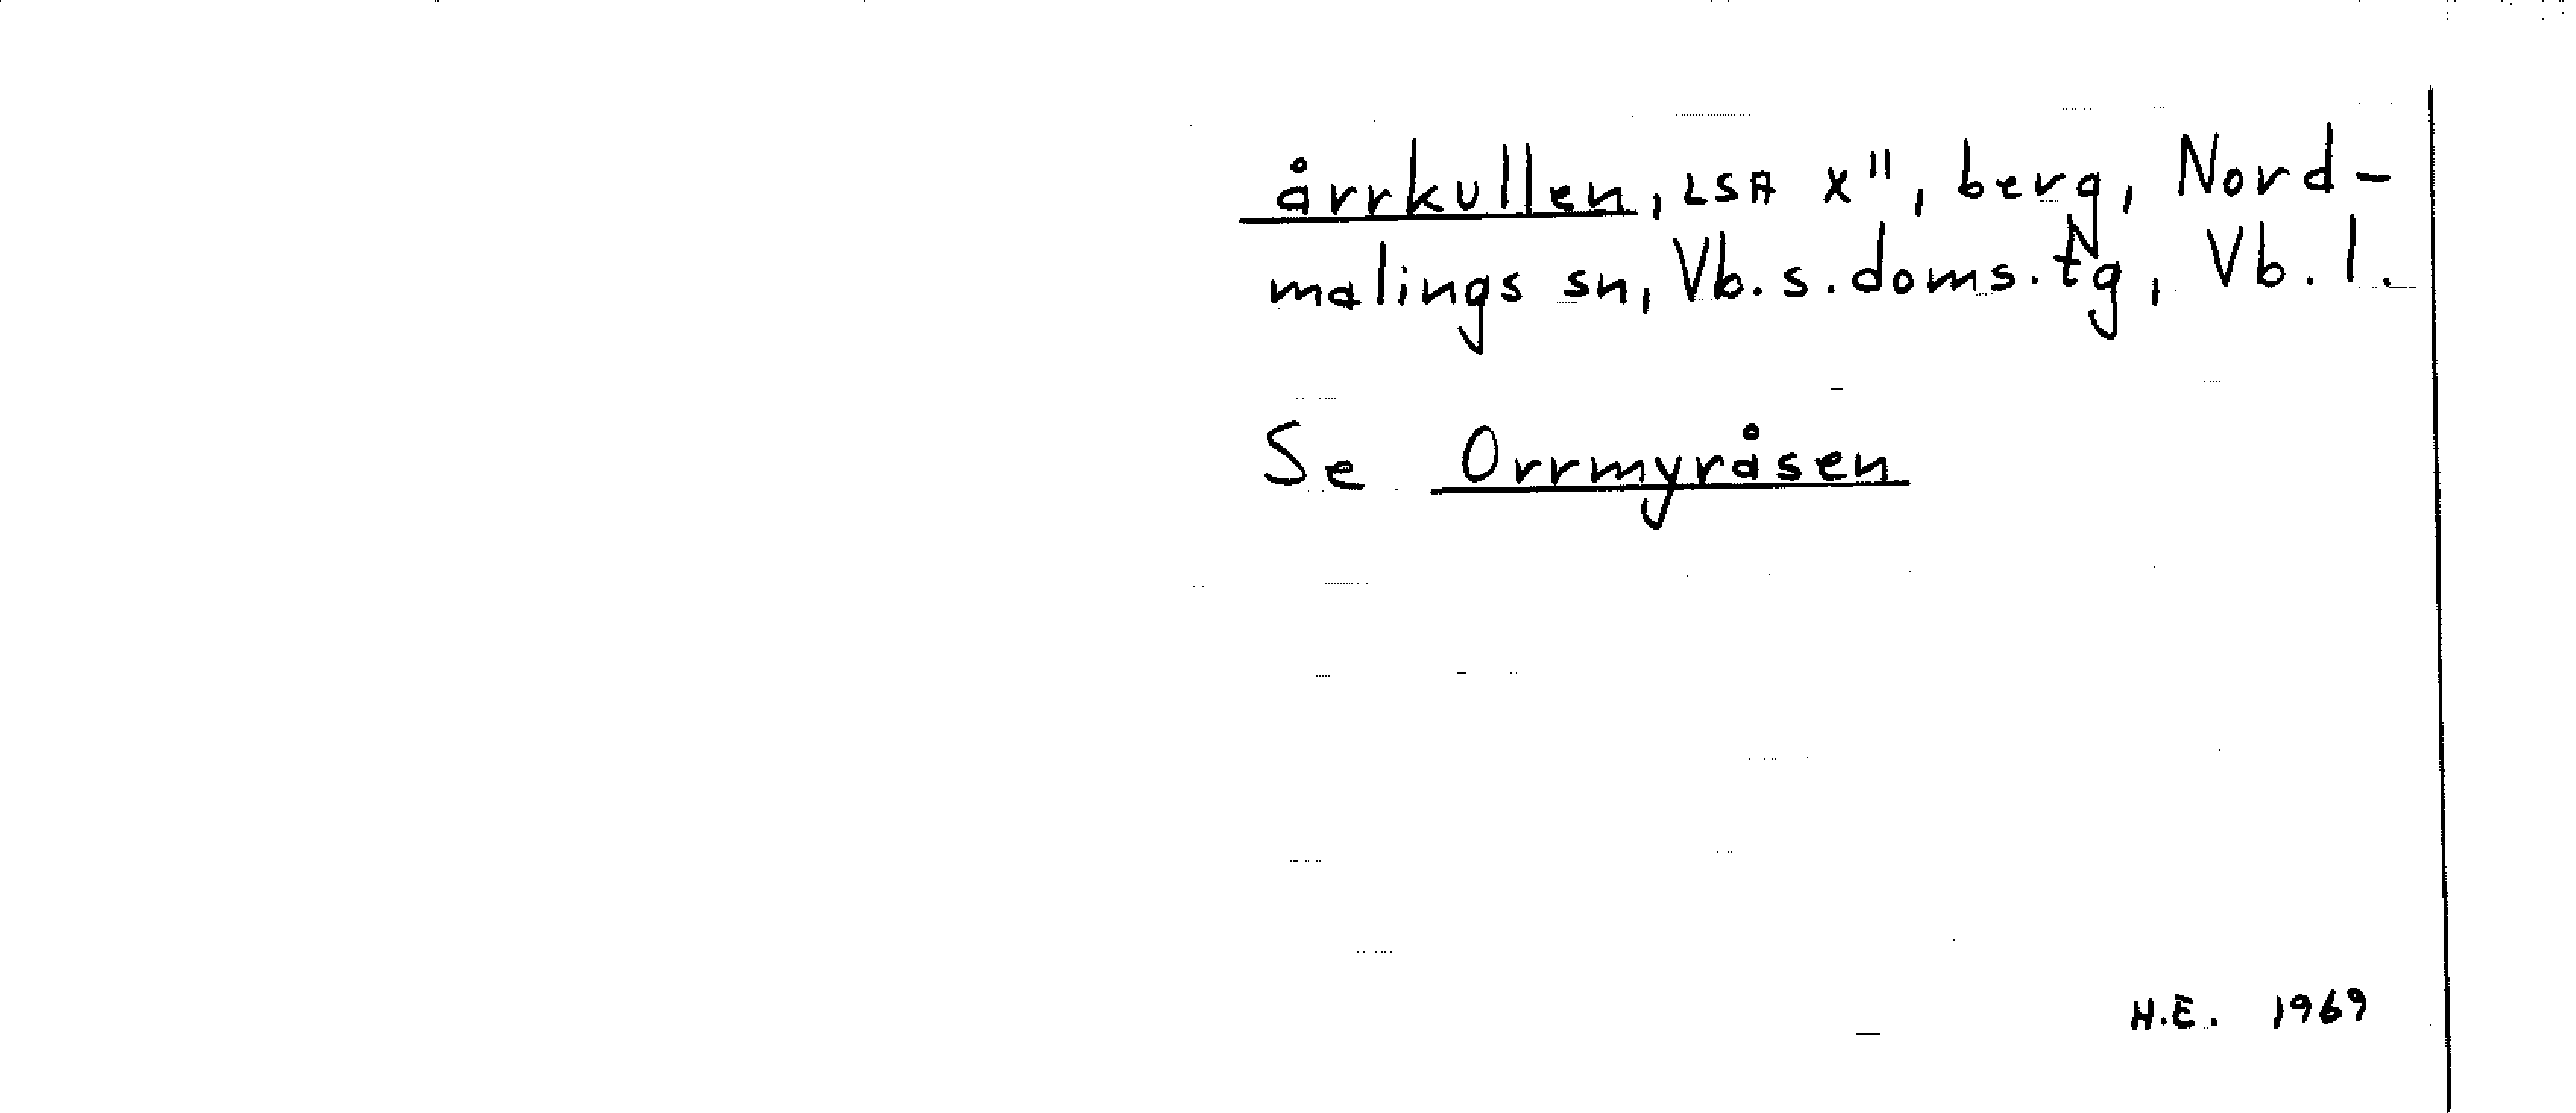 årrkullen, LSA X", berg, Nord-
malings sn, Vb.s.doms.tg, Vb.l.
Se Orrmyråsen
H.E. 1969